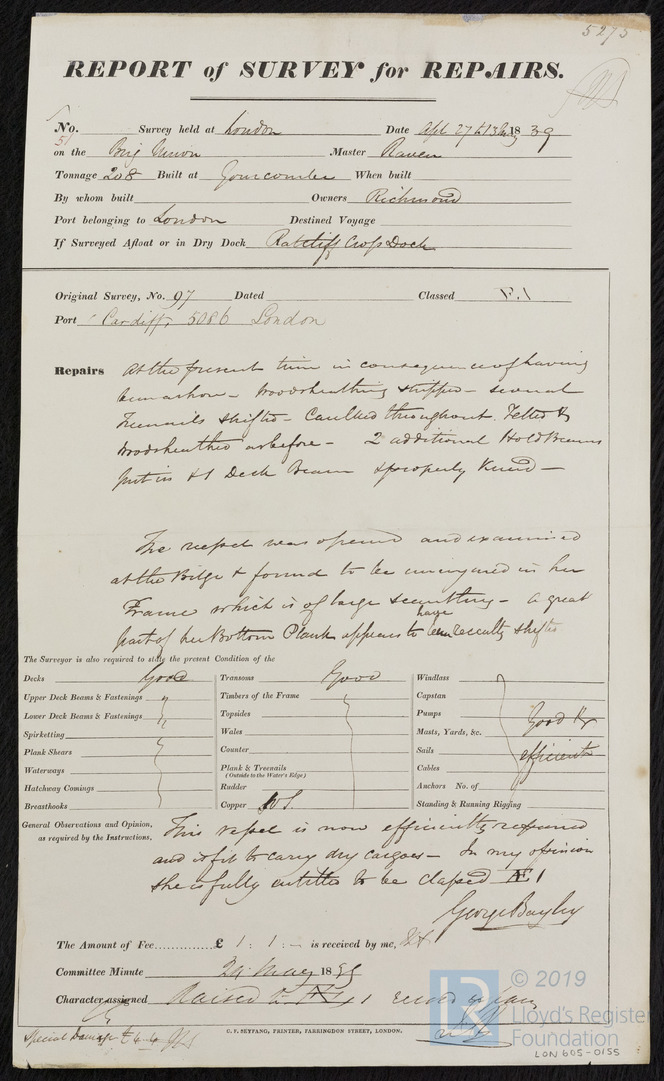 5275
REPORT of SURVEY for REPAIRS.
No. 51 Survey held at London Date Apl 27 1839
on the Brig Union Master Raven
Tonnage 208 Built at When built
By whom built Owners Richmond
Port belonging to London Destined Voyage
If Surveyed Afloat or in Dry Dock Ratcliff Cross Dock
Original Survey, No. 97 Dated Classed Æ.1
Port Cardiff 5086 London
Repairs At the present time in consequence of having
been ashore - Woodsheathing stripped - several
Treenails shifted - Caulked throughout. Felted &
Woodsheathed as before - 2 additional Hold Beams
put in & 1 Deck Beam & properly Kneed -
The vessel was opened and examined
at the Bilge & found to be uninjured in her
Frame which is of large scantling - a great
have
part of her Bottom Plank appears to been recently shifted
The Surveyor is also required to state the present Condition of the
Decks Good
Upper Deck Beams & Fastenings
Lower Deck Beams & Fastenings
Spirketting
Plank Shears
Waterways
Hatchway Comings
Breasthooks
Transoms Good
Timbers of the Frame
Topsides
Wales
Counter
Plank & Treenails
(Outside to the Water's Edge)
Rudder
Copper W S.
Windlass
Capstan
Pumps Good &
Masts, Yards, &c.
Sails efficient
Cables
Anchors No. of
Standing & Running Rigging
General Observations and Opinion,
as required by the Instructions.
This vessel is now efficiently repaired
and is fit to carry dry cargoes - In my opinion
she is fully entitled to be classed Æ 1
George Bayley
The Amount of Fee............ £ 1 : 1 : - is received by me,
Committee Minute 24 May 1839
Character assigned Raised to Æ 1
C. F. SEYFANG, PRINTER, FARRINGDON STREET, LONDON.
Special Damage £ 4-4
LR © 2019
Lloyd's Register
Foundation
LON 605-0155